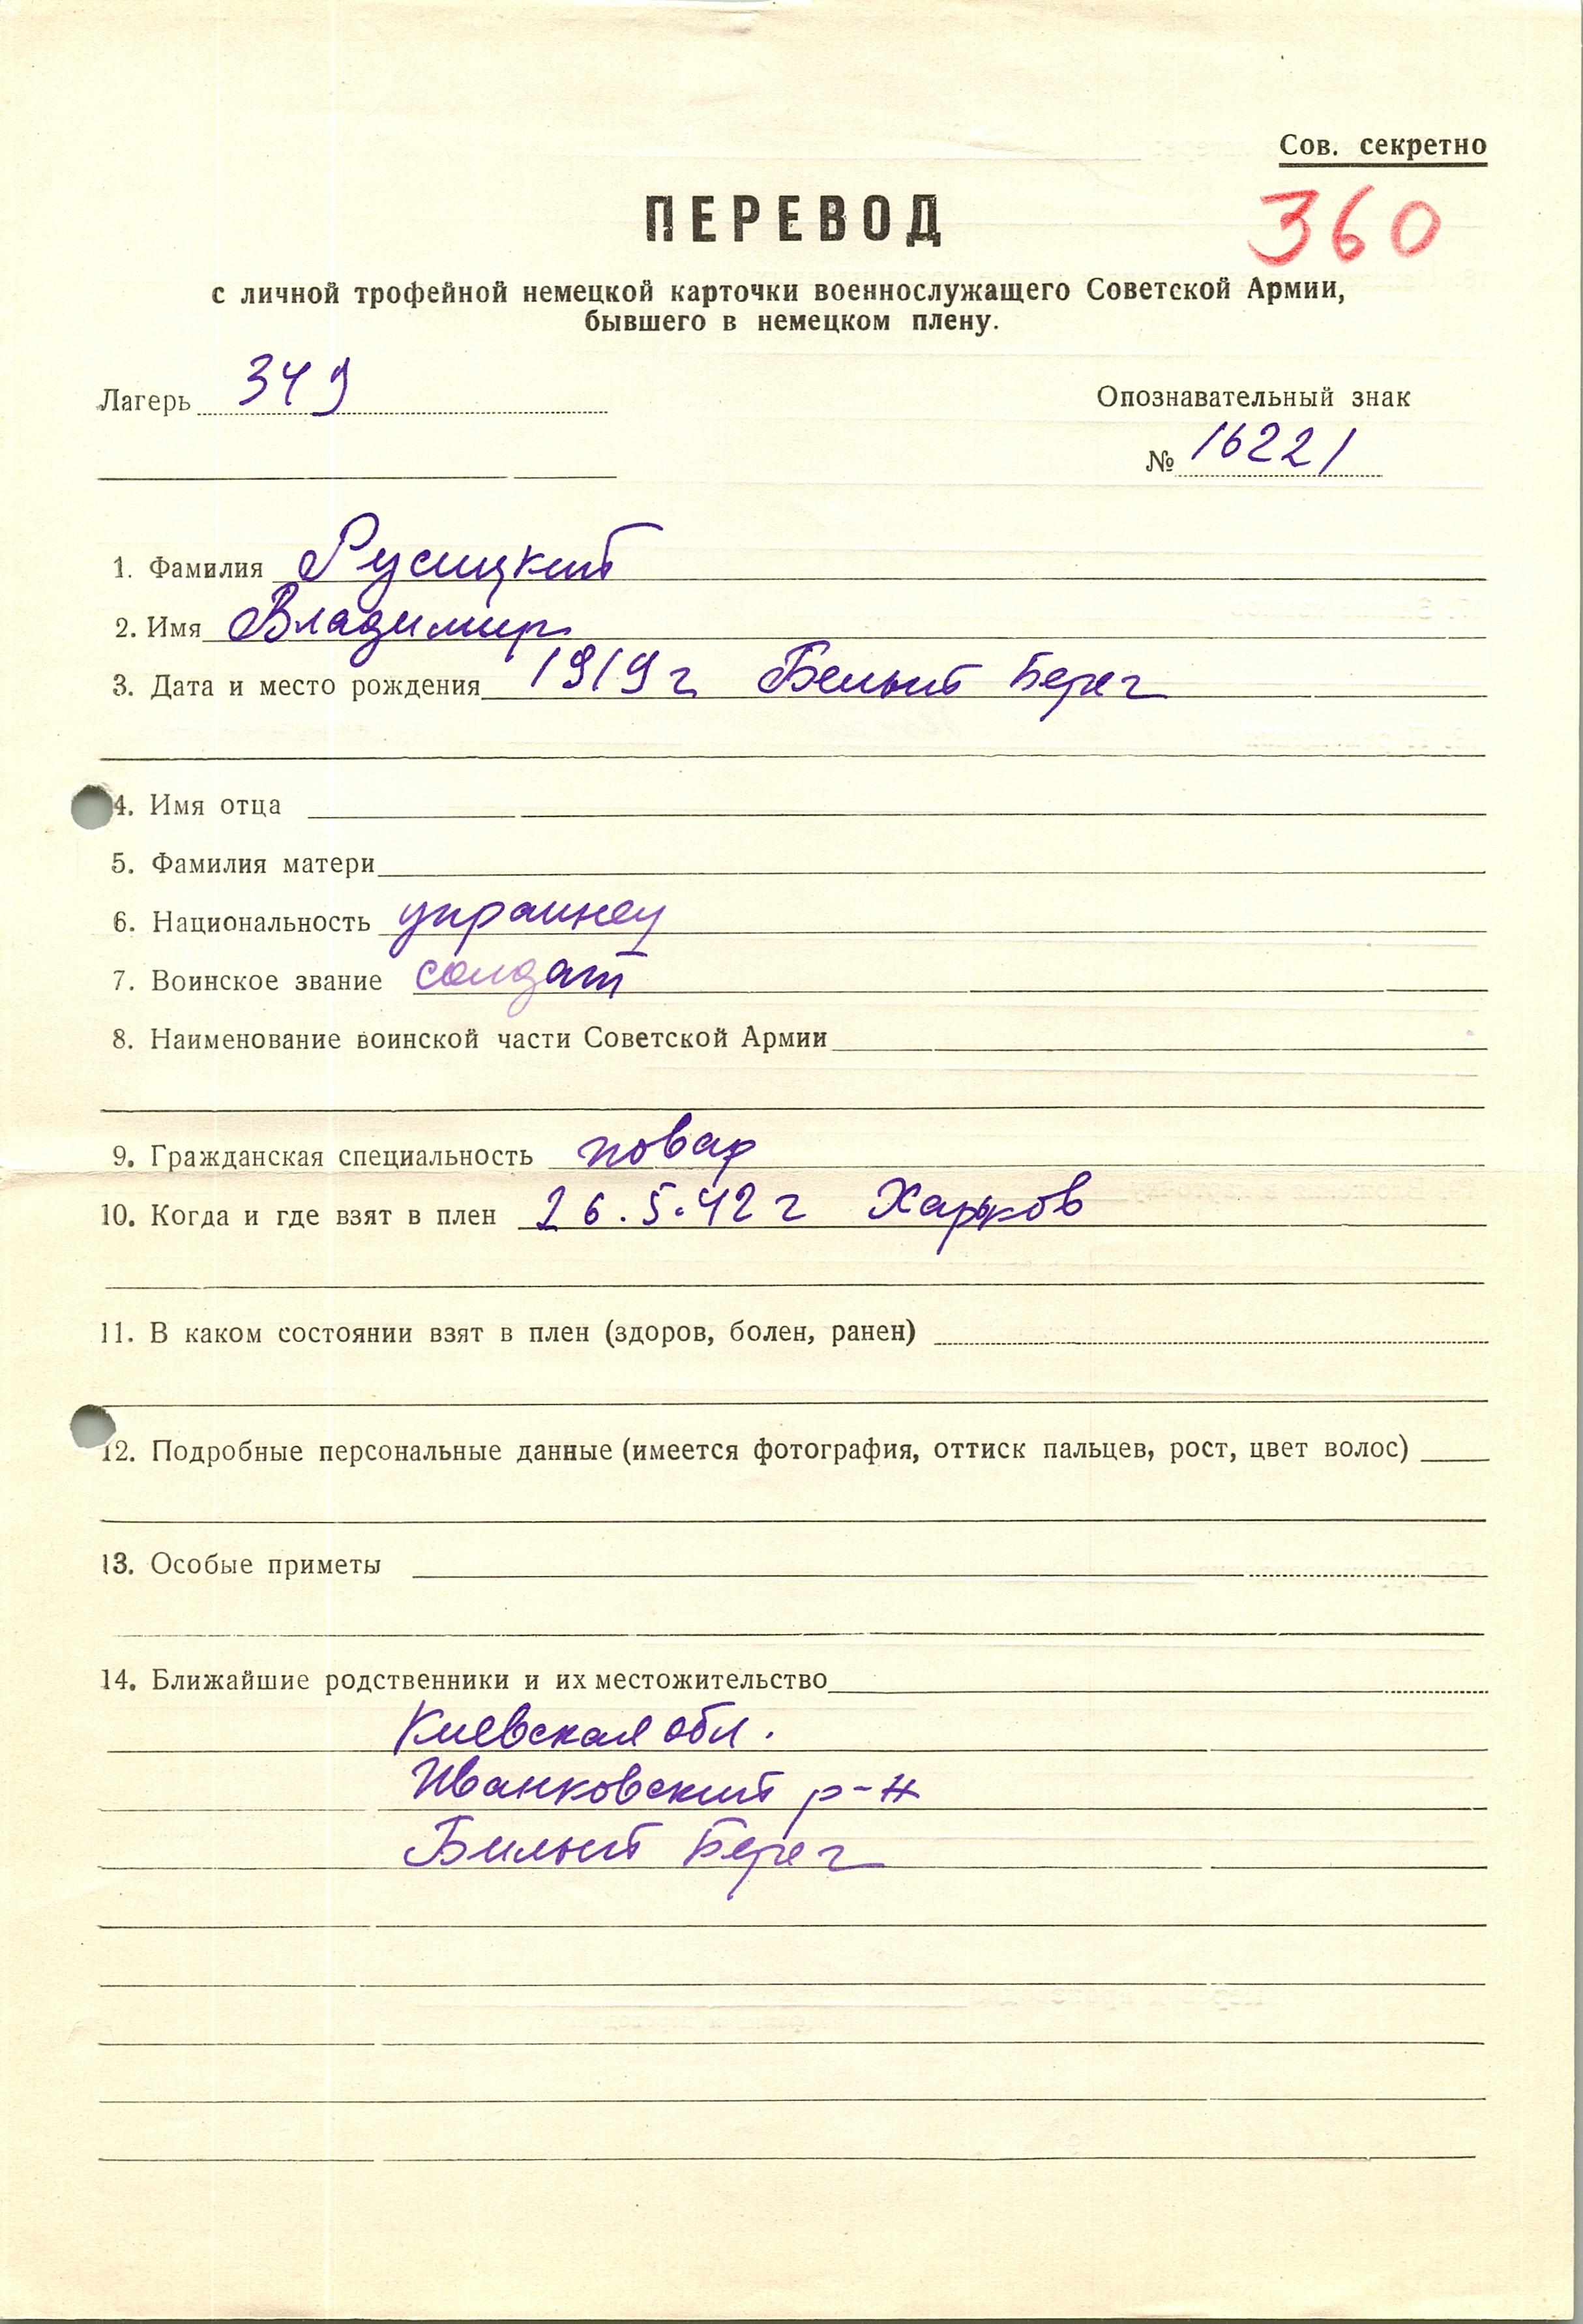 Сов. секретно
ПЕРЕВОД
360
с личной трофейной немецкой карточки военнослужащего Советской Армии,
бывшего в немецком плену.
Лагерь 349
Опознавательный знак
№ 16221
1. Фамилия Русицкий
2. Имя Владимир
3. Дата и место рождения 1919 г Белый Берег
4. Имя отца
5. Фамилия матери
6. Национальность украинец
7. Воинское звание солдат
8. Наименование воинской части Советской Армии
9. Гражданская специальность повар
10. Когда и где взят в плен 26.5.42 г Харьков
11. В каком состоянии взят в плен (здоров, болен, ранен)
12. Подробные персональные данные (имеется фотография, оттиск пальцев, рост, цвет волос)
13. Особые приметы
14. Ближайшие родственники и их местожительство
Киевская обл.
Иванковский р-н
Билый Берег